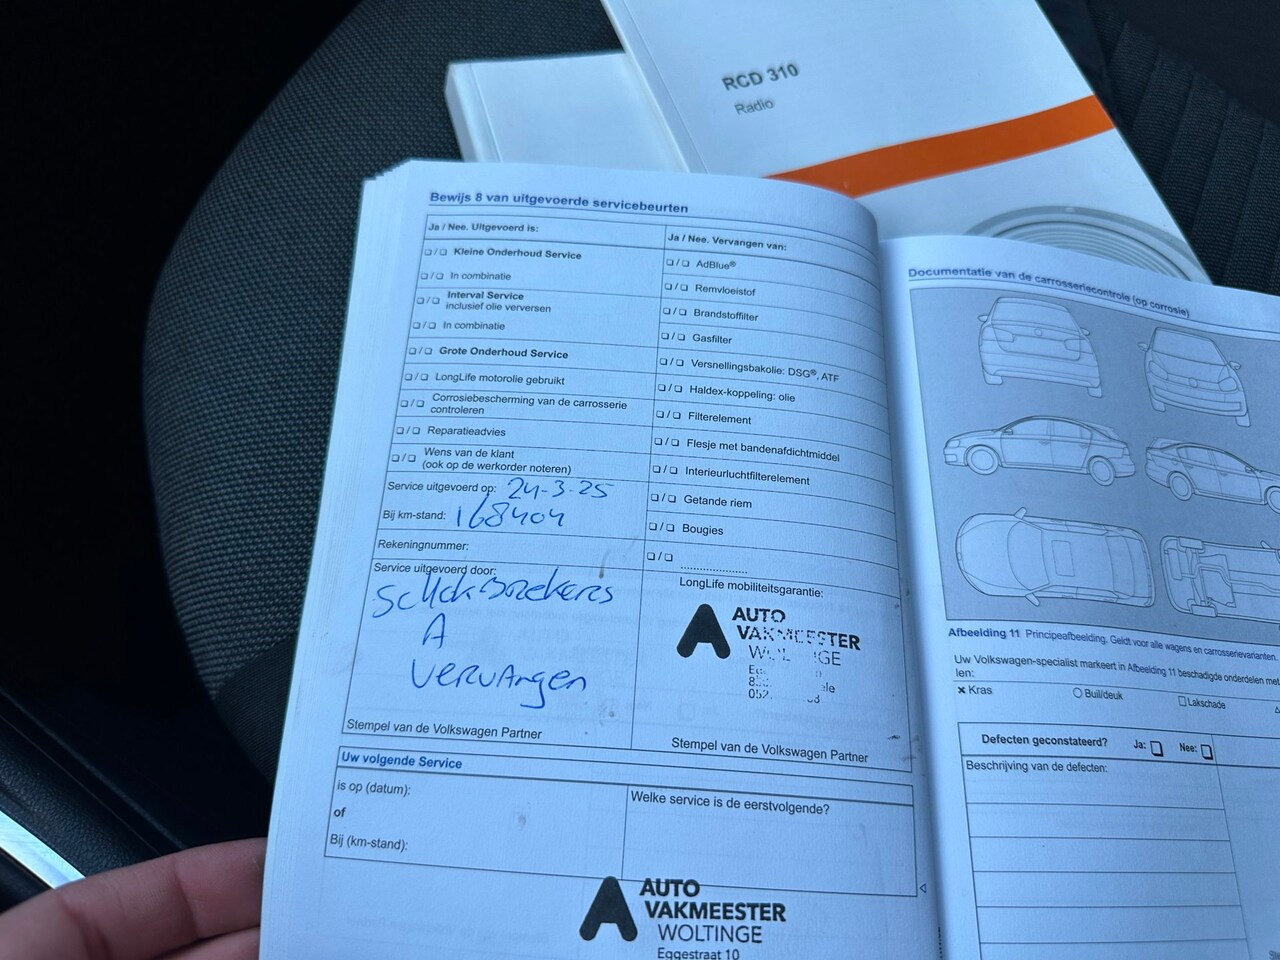 RCD 310
Radio
Bewijs 8 van uitgevoerde servicebeurten
Ja / Nee. Uitgevoerd is:
Kleine Onderhoud Service
In combinatie
Interval Service
inclusief olie verversen
In combinatie
Grote Onderhoud Service
LongLife motorolie gebruikt
Corrosiebescherming van de carrosserie
controleren
Reparatieadvies
Wens van de klant
(ook op de werkorder noteren)
Service uitgevoerd op: 24-3-25
Bij km-stand: 168404
Rekeningnummer:
Service uitgevoerd door:
A
vervangen
Stempel van de Volkswagen Partner
Ja / Nee. Vervangen van:
AdBlue®
Remvloeistof
Brandstoffilter
Gasfilter
Versnellingsbakolie: DSG®, ATF
Haldex-koppeling: olie
Filterelement
Flesje met bandenafdichtmiddel
Interieurluchtfilterelement
Getande riem
Bougies
....................
LongLife mobiliteitsgarantie:
AUTO
VAKMEESTER
Stempel van de Volkswagen Partner
Uw volgende Service
is op (datum):
of
Bij (km-stand):
Welke service is de eerstvolgende?
AUTO
VAKMEESTER
WOLTINGE
Eggestraat 10
Documentatie van de carrosseriecontrole (op corrosie)
Afbeelding 11 Principeafbeelding. Geldt voor alle wagens en carrosserievarianten.
Uw Volkswagen-specialist markeert in Afbeelding 11 beschadigde onderdelen met
len:
× Kras
Buil/deuk
Lakschade
Defecten geconstateerd? Ja: Nee:
Beschrijving van de defecten: